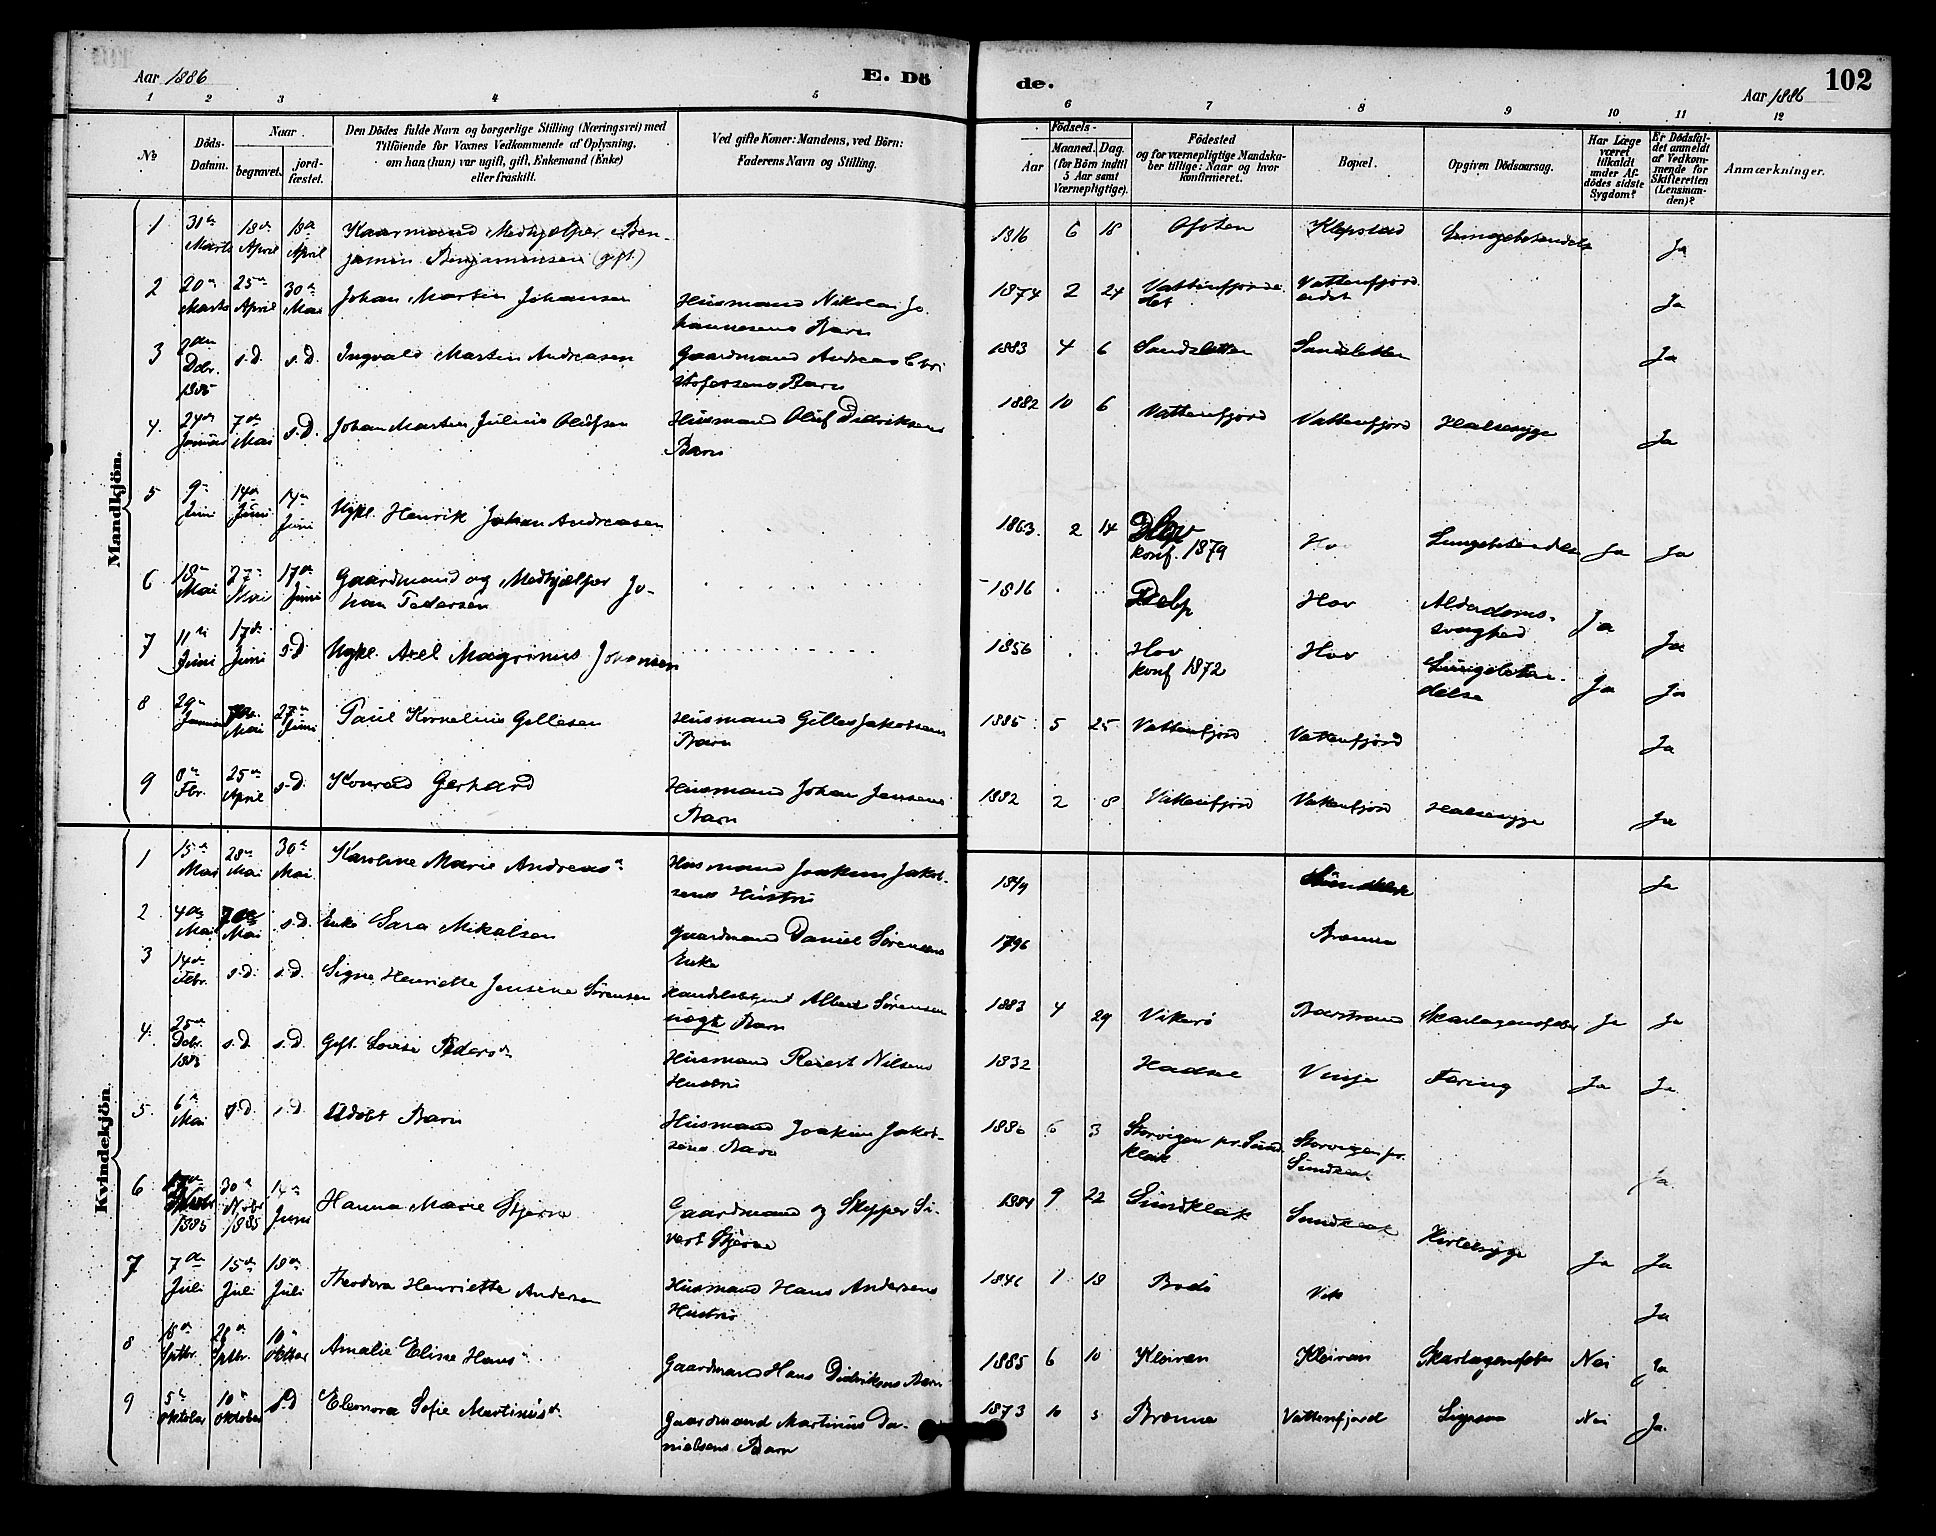 Aar 1886
E. Dö
de.
Aar 1886
102
1 2 3 4 5 6 7 8 9 10 11 12
No
Döds-
Datum.
Naar
begravet.
jord-
fæstet.
Den Dödes fulde Navn og borgerlige Stilling (Næringsvei) med
Tilföiende for Voxnes Vedkommende af Oplysning,
om han (hun) var ugift, gift, Enkemand (Enke)
eller fraskilt.
Ved gifte Koner: Mandens, ved Börn:
Faderens Navn og Stilling.
Födsels-
Aar
Maaned.
Dag.
(for Börn indtil
5 Aar samt
Værnepligtige).
Födested
og for værnepligtige Mandska-
ber tillige: Naar og hvor
konfirmeret.
Bopæl.
Opgiven Dödsaarsag.
Har Læge
været
tilkaldt
under Af-
dödes sidste
Sygdom?
Er Dödsfal-
det anmeldt
af Vedkom-
mende for
Skifteretten
(Lensman-
den)?
Anmærkninger.
Mandkjön.
1 31te Marts 18de April 18de April Kaarmand Medhjælper Ben-
jamin Benjaminsen (gift) 1816 6 18 Ofoten Klepstad Lungebetændelse Ja
2 20de Marts 25de April 30te Mai Johan Martin Johansen Husmand Nikolai Jo-
hannesens Barn 1874 2 24 Vattenfjorde Vattenfjord
eidet Ja
3 Dcbr. s.D. s.D. Ingvald Martin Andreasen Gaardmand Andreas Chri
stofersens Barn 1883 4 6 Sandsletten Sandsletten Ja
4. 24de Januar 7de Mai s.D. Johan Martin Julius Olufsen Husmand Oluf Didriksens
Barn 1882 10 6 Vattenfjord Vattenfjord Halsesyge Ja
5 9de Juni 14de Juni 14de Juni Ugkl. Henrik Johan Andreasen 1863. 2 14 Hov
konf. 1879 Hov Lungebetændelse Ja Ja
6 18de Mai 27de Mai 17de Juni Gaardmand og Medhjælper Jo-
han Pedersen 1816 Delp Hov Alderdoms-
svaghed Ja
7 11te Juni 17de Juni s.D Ugkl. Axel Magrinus Johansen 1856 Hov
konf 1872 Hov Lungebetæn-
delse Ja Ja
8 29de Januar Mai 27de Juni Paul Kornelius Gillesen Husmand Gilles Jakobsens
Barn 1885 5 25 Vattenfjord Vattenfjord Ja
9 8de Fbr. 25de April s.D. Konrad Gerhard Husmand Johan Jensens
Barn 1882 2 8 Vattenfjord Vattenfjord Halsesyge Ja
Kvindekjön.
1 15de Mai 28de Mai 30te Mai. Karoline Marie Andreasdr Husmand Joakim Jakob-
sens Hustru 1849 Sundklak Ja
2 4de Mai Mai s.D. Enke Sara Mikalsen Gaardmand Daniel Sørensens
Enke 1796 Brenna
3 14de Febr. s.D. s.D. Signe Henriette Jensine Sørensen Handelsbetjent Albert Sørensen
uægt Barn 1883 4 29 Vikerö Barstrand Skarlagensfeber Ja Ja
4. 25de Dcbr. 1885 s.D. s.D. Gift. Lovise Pedersdr Husmand Reiert Nilsens
Hustru 1832 Hadsel Vinje Tæring Ja Ja
5. 6te Mai s.D. s.D. Udöbt Barn Husmand Joakim Jakob-
sens Barn 1886 5 3 Storvigen pr. Sund
klak Storvigen pr.
Sundklak Ja
6 1885 30te Novbr 1885 14de Juni Hanna Marie Stjerne Gaardmand og Skipper Si-
vert Stjerne 1884 9 22 Sundklak Sundklak Kirtelsyge Ja Ja
7 7de Juli 15de Juli 18de Juli Theodora Henriette Andersen Husmand Hans Andersens
Hustru 1846 1 18 Bodö Vik Ja
8 18de Sptbr. 28de Sptbr. 10de Oktober Amalie Elise Hansdr Gaardmand Hans Didriksens Barn 1885 6 10 Kleivan Kleivan Skarlagensfeber Nei Ja
9 5te Oktober 10de Oktober s.D Eleonora Sofie Martinusdr Gaardmand Martinus Da-
nielsens Barn 1873 10 3 Brenna Vattenfjord Nei Ja.